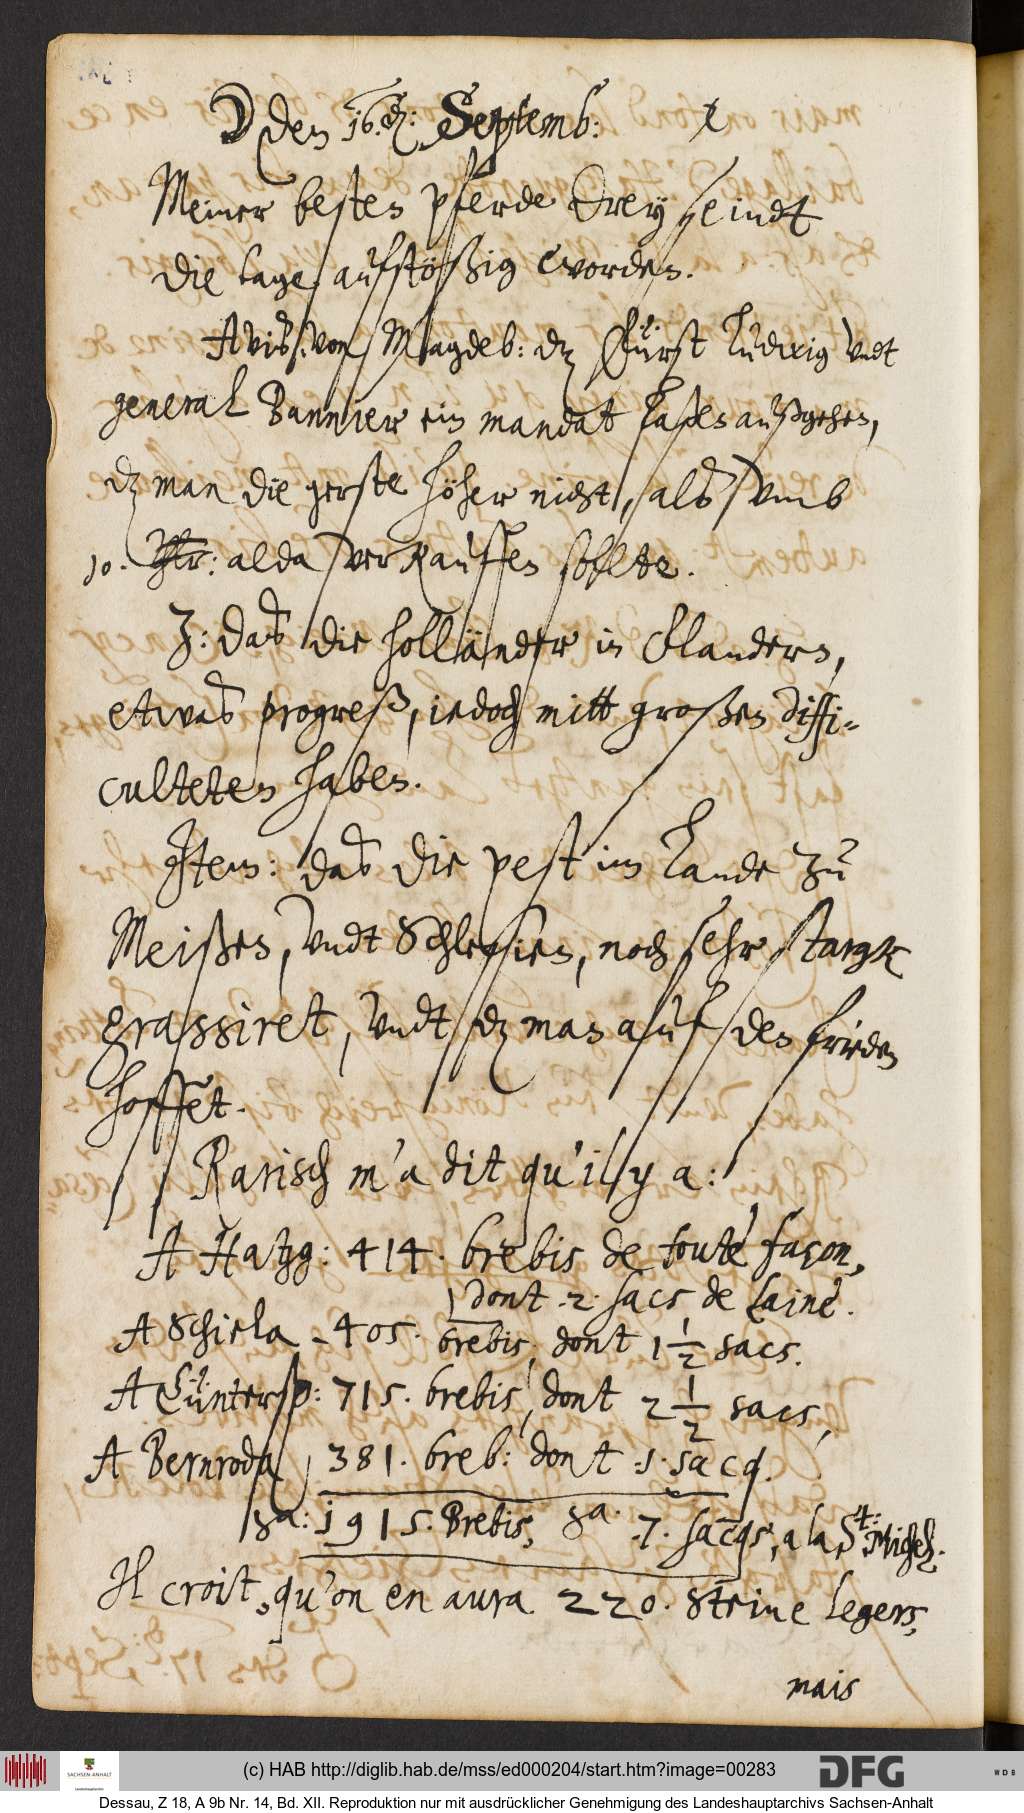 ☽ den 16. d: Septemb: x
Meiner besten pferde drey seindt
die tage, aufstößig worden.
Avis: von Magdeb: dz Fürst Ludwig vndt
general Bannier ein mandat laßen außgehen,
dz man die gerste höher nicht, als vmb
10. Thlr: alda verkauffen sollte.
Z: das die holländer in Flandern,
etwas progreß, iedoch mitt großen diffi-
culteten haben.
Item: das die pest im lande zu
Meißen, vndt Schlesien, noch sehr stargk
grassiret, vndt dz man auf den frieden
hoffet.
Rarisch m'a dit qu'il y a:
A Hatzg: 414. brebis de toute façon,
dont .2. sacs de laine.
A Schiela - 405. brebis, dont 1 1/2 sacs.
A Güntersp: 715. brebis, dont 2 1/2 sacs,
A Bernroda, 381. breb: dont .1. sacq.
Sa: 1915. Brebis, Sa. .7. sacqs, a la St: Michel.
Il croit, qu'on en aura 220. steine legers,
mais
(c) HAB http://diglib.hab.de/mss/ed000204/start.htm?image=00283
SACHSEN-ANHALT
DFG
WDB
Dessau, Z 18, A 9b Nr. 14, Bd. XII. Reproduktion nur mit ausdrücklicher Genehmigung des Landeshauptarchivs Sachsen-Anhalt